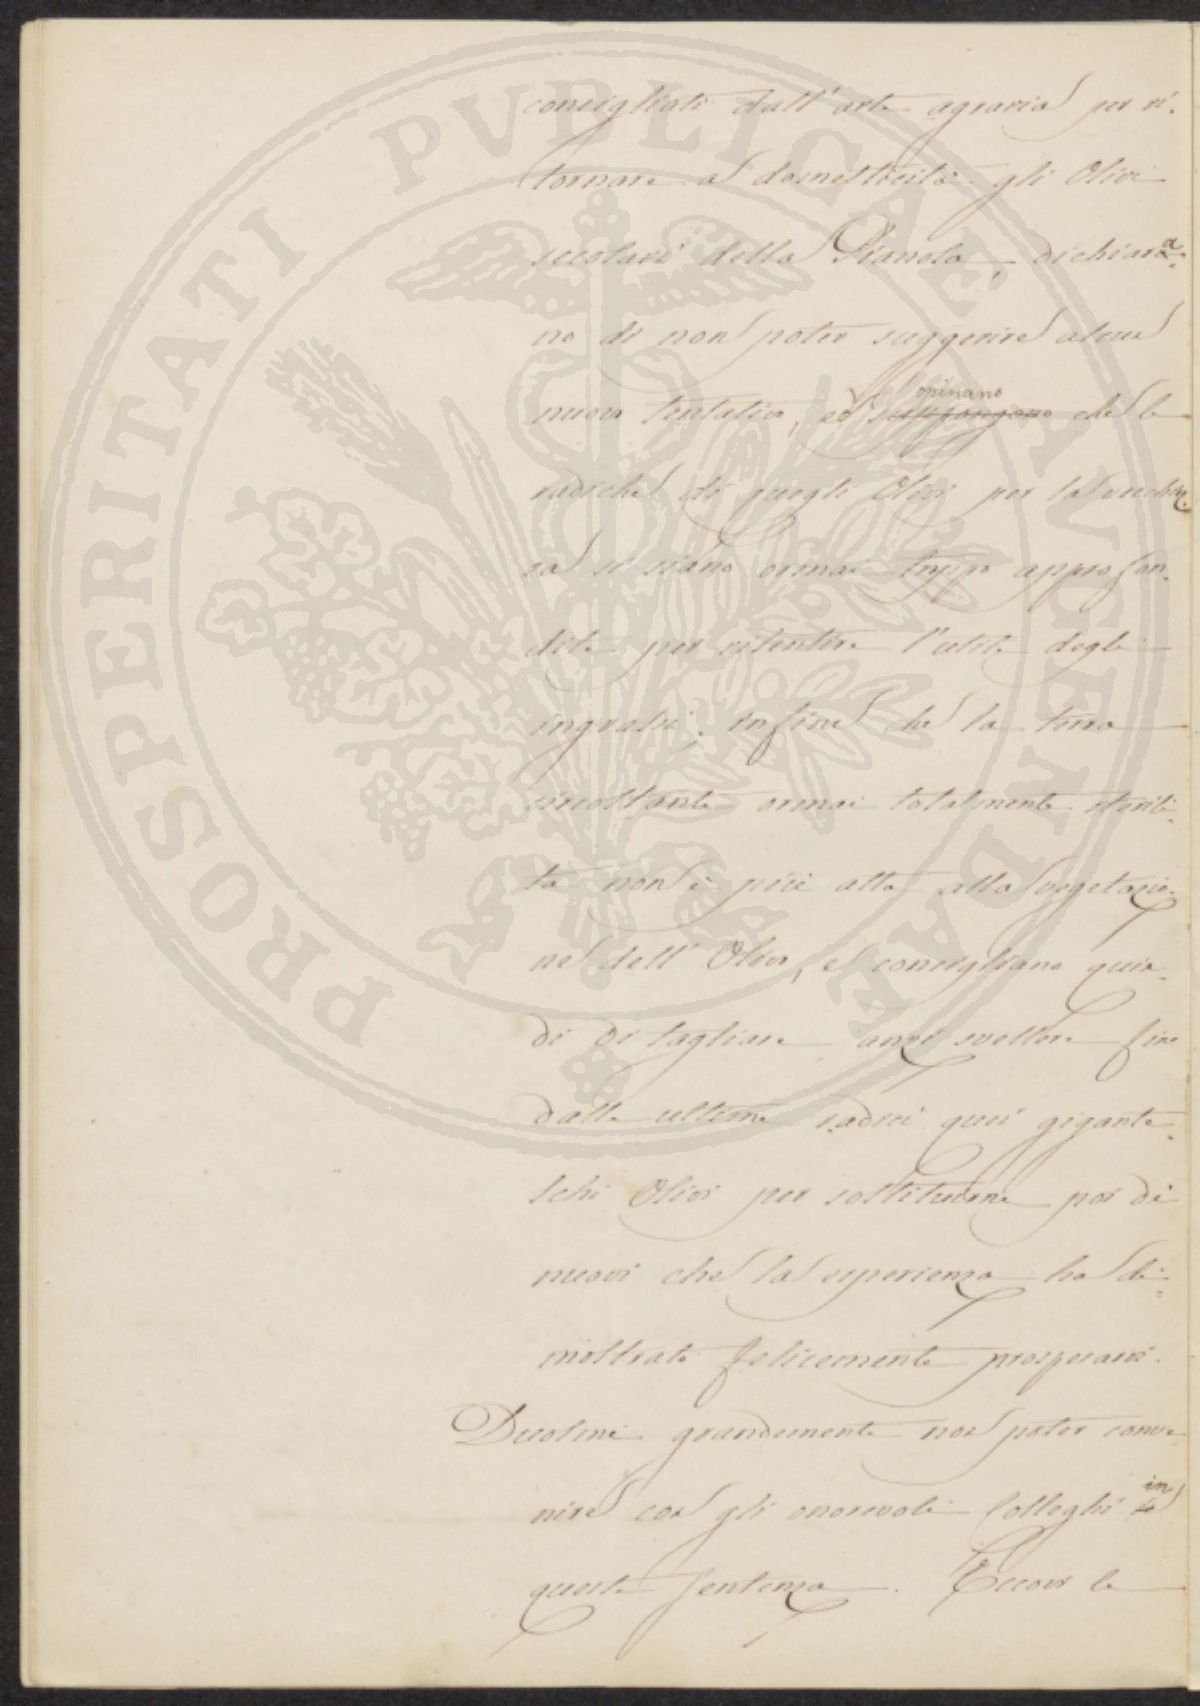 consigliati dall' arte agraria per ri-
tornare a domesticità gli Olivi
secolari della Pianola, dichiara-
no di non poter suggerire alcun
nuovo tentativo, ed opinano che le
radiche di quegli Olivi per la vecchiez-
za si siano ormai troppo approfon-
dite per risentire l'utile degli
ingrassi; infine che la terra
circostante ormai totalmente sterili-
ta non è più atta alla vegetazio-
ne dell' Olivo, e consigliano quin-
di di tagliare anzi svellere fino
dalle ultime radici quei gigante-
schi Olivi per sostituirne poi di
nuovi che la esperienza ha di-
mostrato felicemente prosperarvi.
Duolmi grandemente non poter conve-
nire con gli onorevoli Colleghi in
questa sentenza. Eccovi le
PROSPERITATI PVBLICAE AVGENDAE